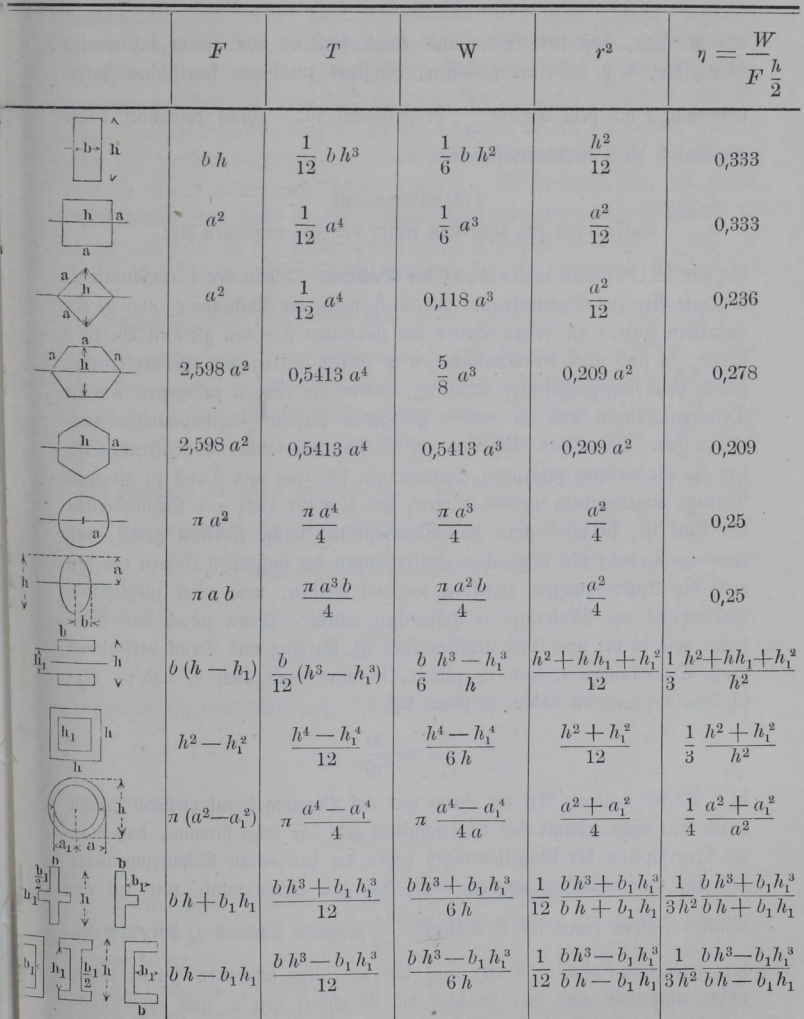 F T W r² η = W / (F h/2)
b h b h h 1/12 b h³ 1/6 b h² h²/12 0,333
h a a a² 1/12 a⁴ 1/6 a³ a²/12 0,333
a h a a² 1/12 a⁴ 0,118 a³ a²/12 0,236
a a h 2,598 a² 0,5413 a⁴ 5/8 a³ 0,209 a² 0,278
h a 2,598 a² 0,5413 a⁴ 0,5413 a³ 0,209 a² 0,209
a π a² π a⁴/4 π a³/4 a²/4 0,25
h a b π a b π a³ b/4 π a² b/4 a²/4 0,25
b h₁ h b (h — h₁) b/12 (h³ — h₁³) b/6 (h³ — h₁³)/h (h² + h h₁ + h₁²)/12 1/3 (h² + h h₁ + h₁²)/h²
h₁ h h h² — h₁² (h⁴ — h₁⁴)/12 (h⁴ — h₁⁴)/6 h (h² + h₁²)/12 1/3 (h² + h₁²)/h²
h a₁ a π (a² — a₁²) π (a⁴ — a₁⁴)/4 π (a⁴ — a₁⁴)/4 a (a² + a₁²)/4 1/4 (a² + a₁²)/a²
b b₁/2 h₁ h b b₁ b h + b₁ h₁ (b h³ + b₁ h₁³)/12 (b h³ + b₁ h₁³)/6 h 1/12 (b h³ + b₁ h₁³)/(b h + b₁ h₁) 1/3 h² (b h³ + b₁ h₁³)/(b h + b₁ h₁)
b₁ h₁ b₁/2 h b₁ b b h — b₁ h₁ (b h³ — b₁ h₁³)/12 (b h³ — b₁ h₁³)/6 h 1/12 (b h³ — b₁ h₁³)/(b h — b₁ h₁) 1/3 h² (b h³ — b₁ h₁³)/(b h — b₁ h₁)